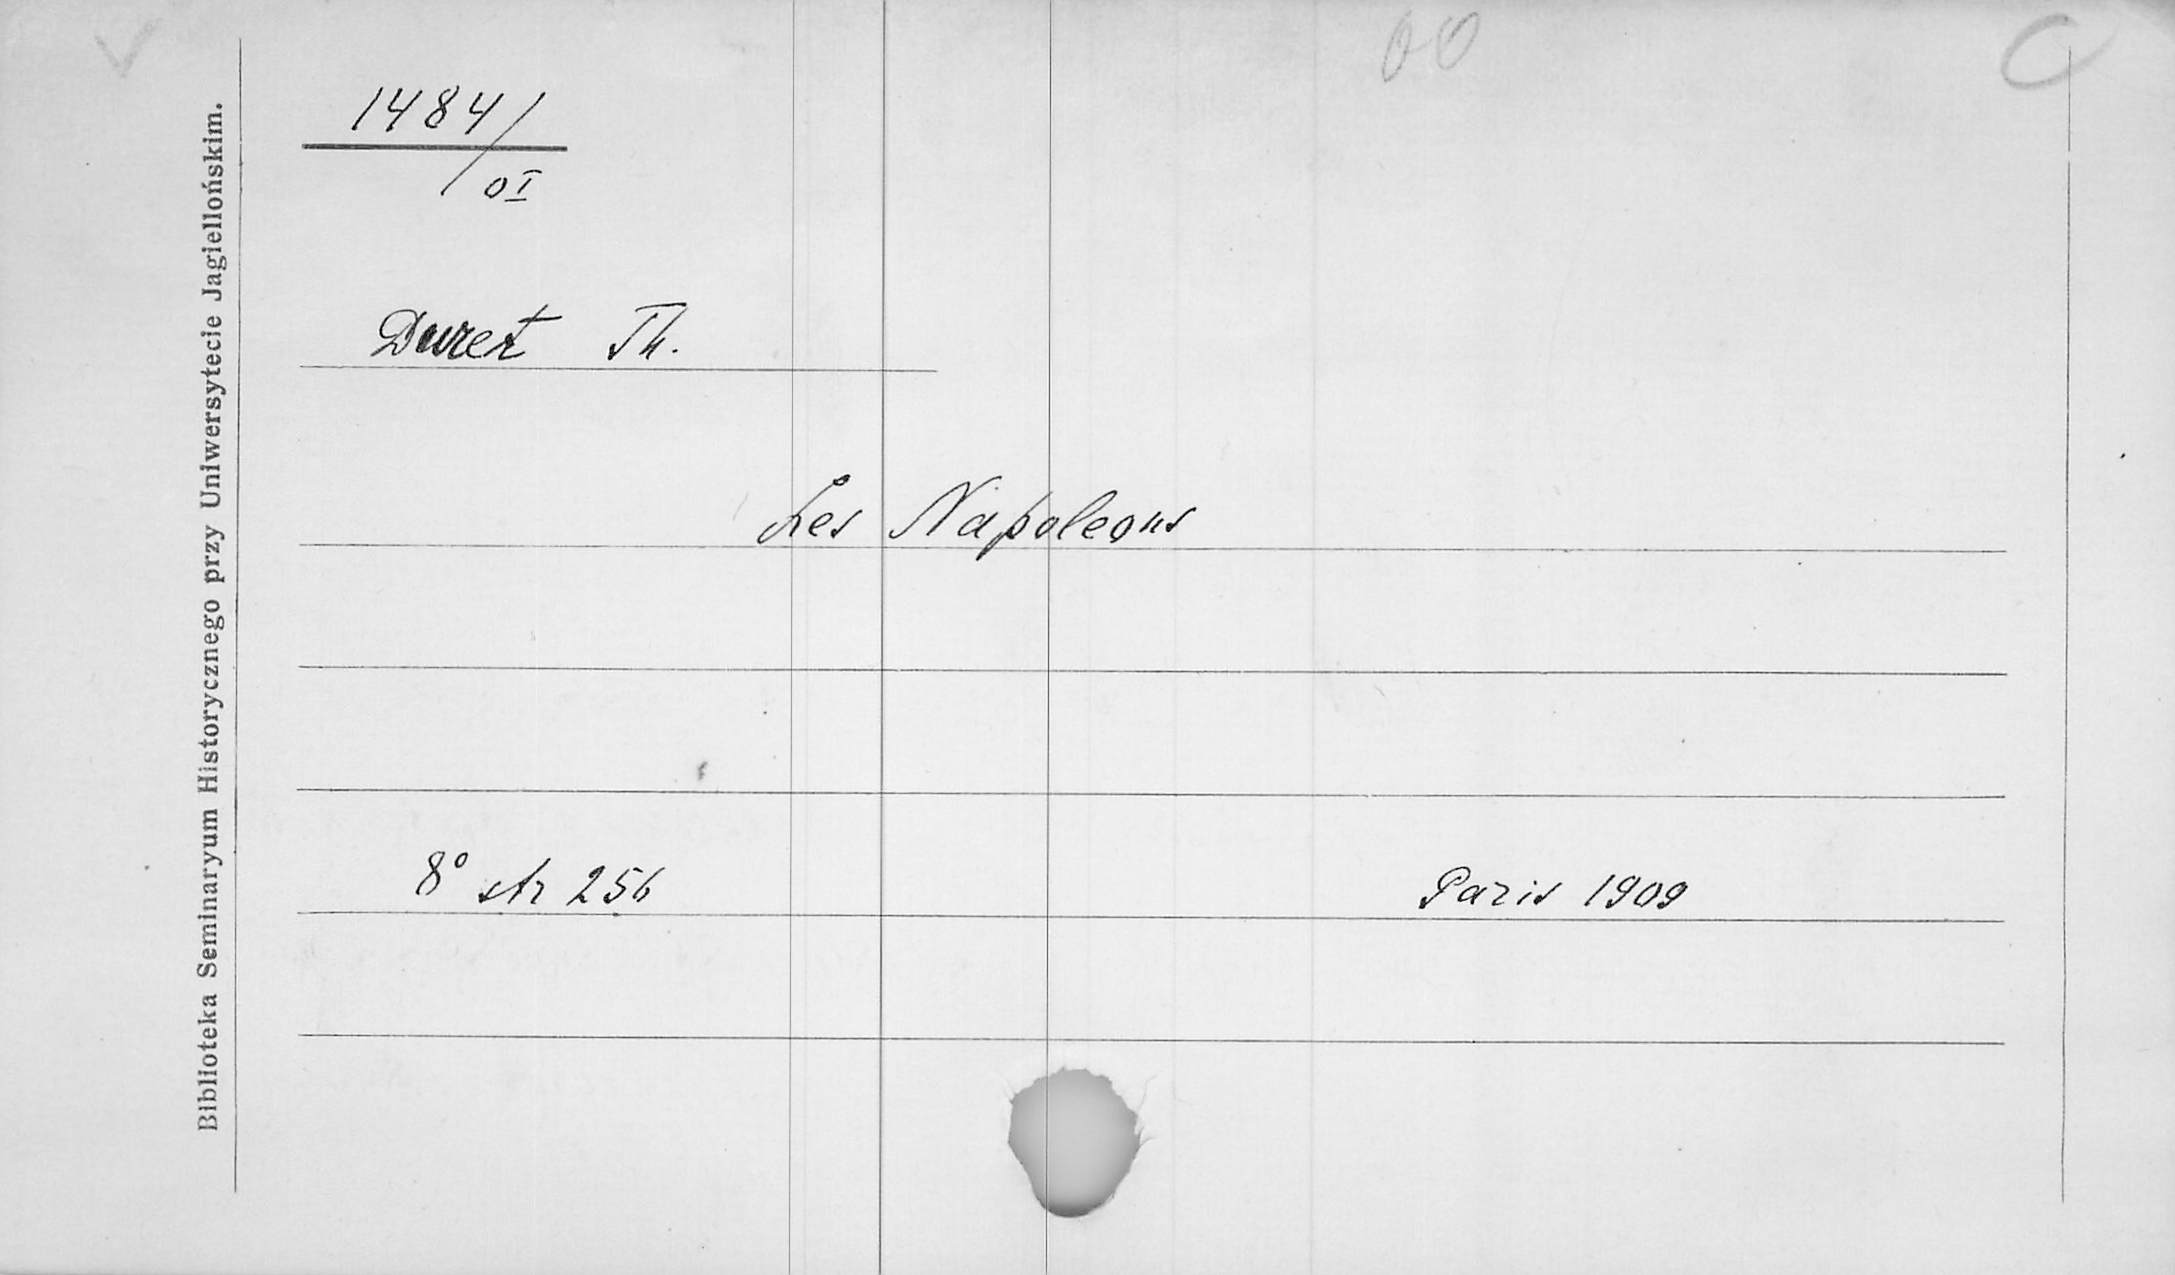 1484/
0I
Duret Th.
Les Napoleons
8° str 256
Paris 1909
Biblioteka Seminaryum Historycznego przy Uniwersytecie Jagiellońskim.